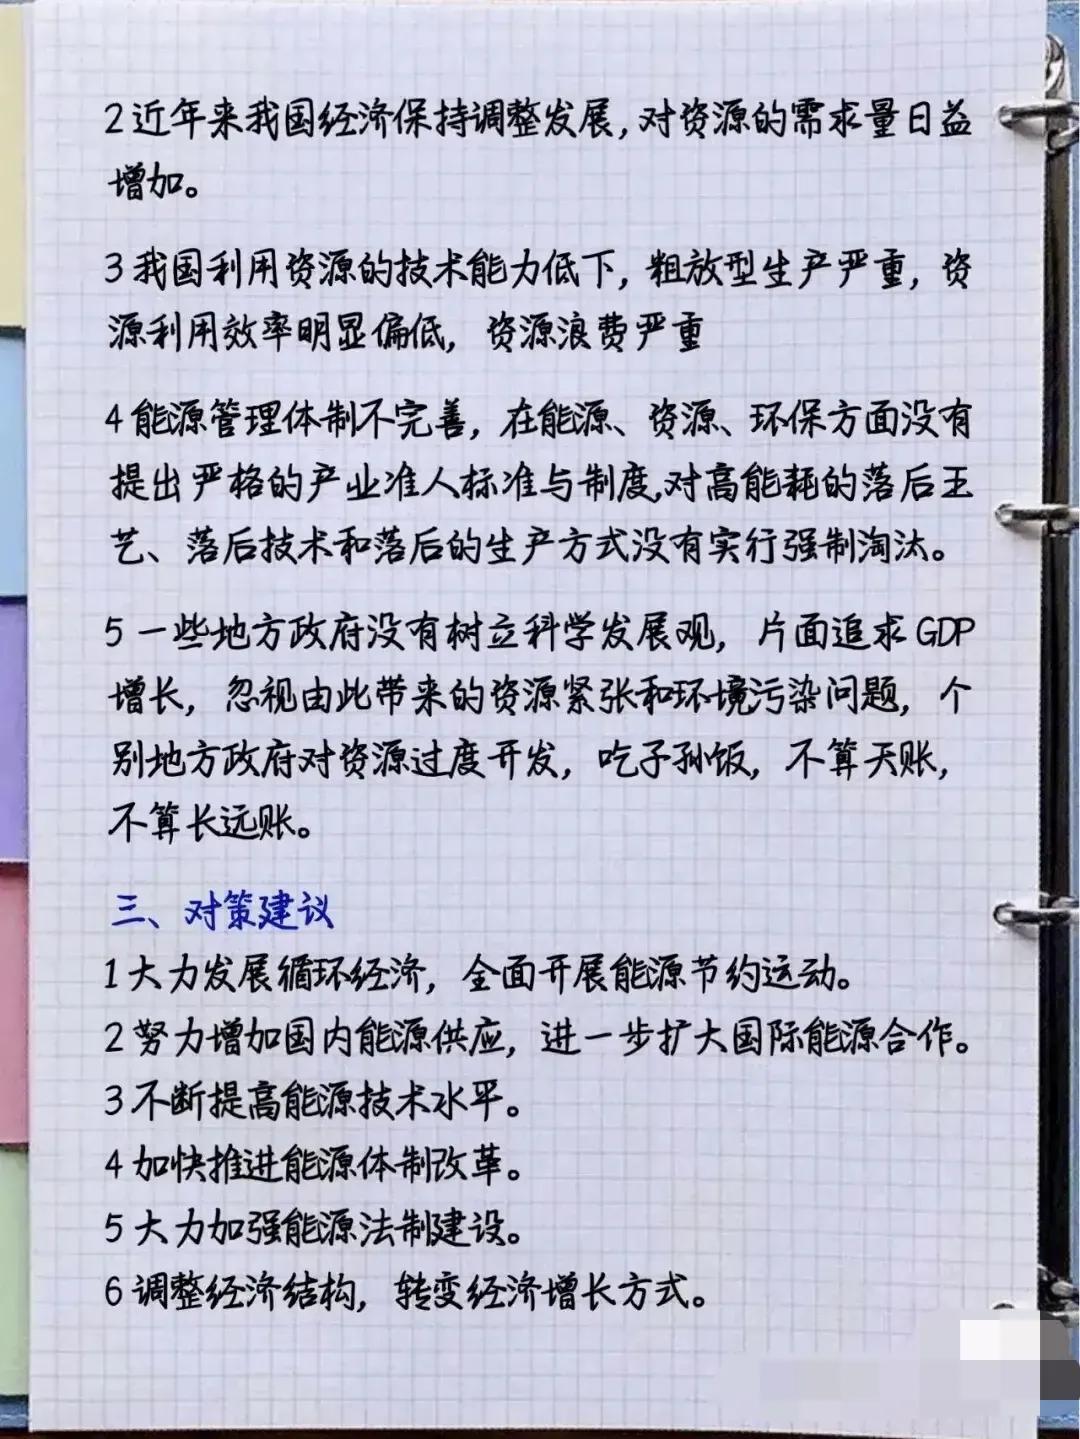 2近年来我国经济保持调整发展,对资源的需求量日益
增加。
3我国利用资源的技术能力低下,粗放型生产严重,资
源利用效率明显偏低,资源浪费严重
4能源管理体制不完善,在能源、资源、环保方面没有
提出严格的产业准人标准与制度,对高能耗的落后王
艺、落后技术和落后的生产方式没有实行强制淘汰。
5一些地方政府没有树立科学发展观,片面追求GDP
增长,忽视由此带来的资源紧张和环境污染问题,个
别地方政府对资源过度开发,吃子孙饭,不算天账,
不算长远账。
三、对策建议
1大力发展循环经济,全面开展能源节约运动。
2努力增加国内能源供应,进一步扩大国际能源合作。
3不断提高能源技术水平。
4加快推进能源体制改革。
5大力加强能源法制建设。
6调整经济结构,转变经济增长方式。